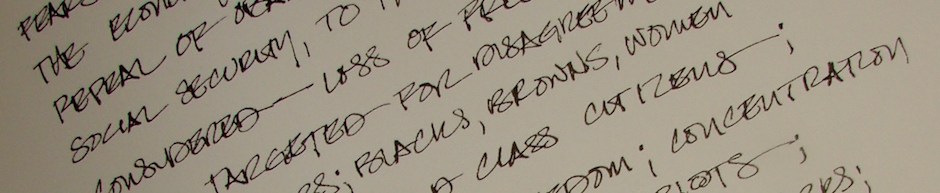 FEARS
THE ECONOM
REPEAL OF
SOCIAL SECURITY, TO
CONSIDERED — LOSS OF
TARGETED FOR DISAGREEM
BLACKS, BROWNS, WOMEN
CLASS CITIZENS;
CONCENTRATION